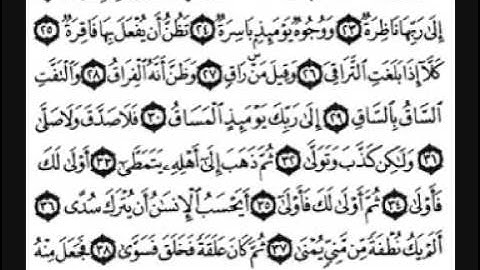 إِلَىٰ رَبِّهَا نَاظِرَةٌ ٢٣ وَوُجُوهٌ يَوْمَئِذٍۭ بَاسِرَةٌ ٢٤ تَظُنُّ أَن يُفْعَلَ بِهَا فَاقِرَةٌ ٢٥
كَلَّآ إِذَا بَلَغَتِ التَّرَاقِىَ ٢٦ وَقِيلَ مَنْ ۜ رَاقٍ ٢٧ وَظَنَّ أَنَّهُ الْفِرَاقُ ٢٨ وَالْتَفَّتِ
السَّاقُ بِالسَّاقِ ٢٩ إِلَىٰ رَبِّكَ يَوْمَئِذٍ الْمَسَاقُ ٣٠ فَلَا صَدَّقَ وَلَا صَلَّىٰ
٣١ وَلَٰكِن كَذَّبَ وَتَوَلَّىٰ ٣٢ ثُمَّ ذَهَبَ إِلَىٰٓ أَهْلِهِۦ يَتَمَطَّىٰٓ ٣٣ أَوْلَىٰ لَكَ
فَأَوْلَىٰ ٣٤ ثُمَّ أَوْلَىٰ لَكَ فَأَوْلَىٰٓ ٣٥ أَيَحْسَبُ الْإِنسَٰنُ أَن يُتْرَكَ سُدًى ٣٦
أَلَمْ يَكُ نُطْفَةً مِّن مَّنِىٍّ يُمْنَىٰ ٣٧ ثُمَّ كَانَ عَلَقَةً فَخَلَقَ فَسَوَّىٰ ٣٨ فَجَعَلَ مِنْهُ